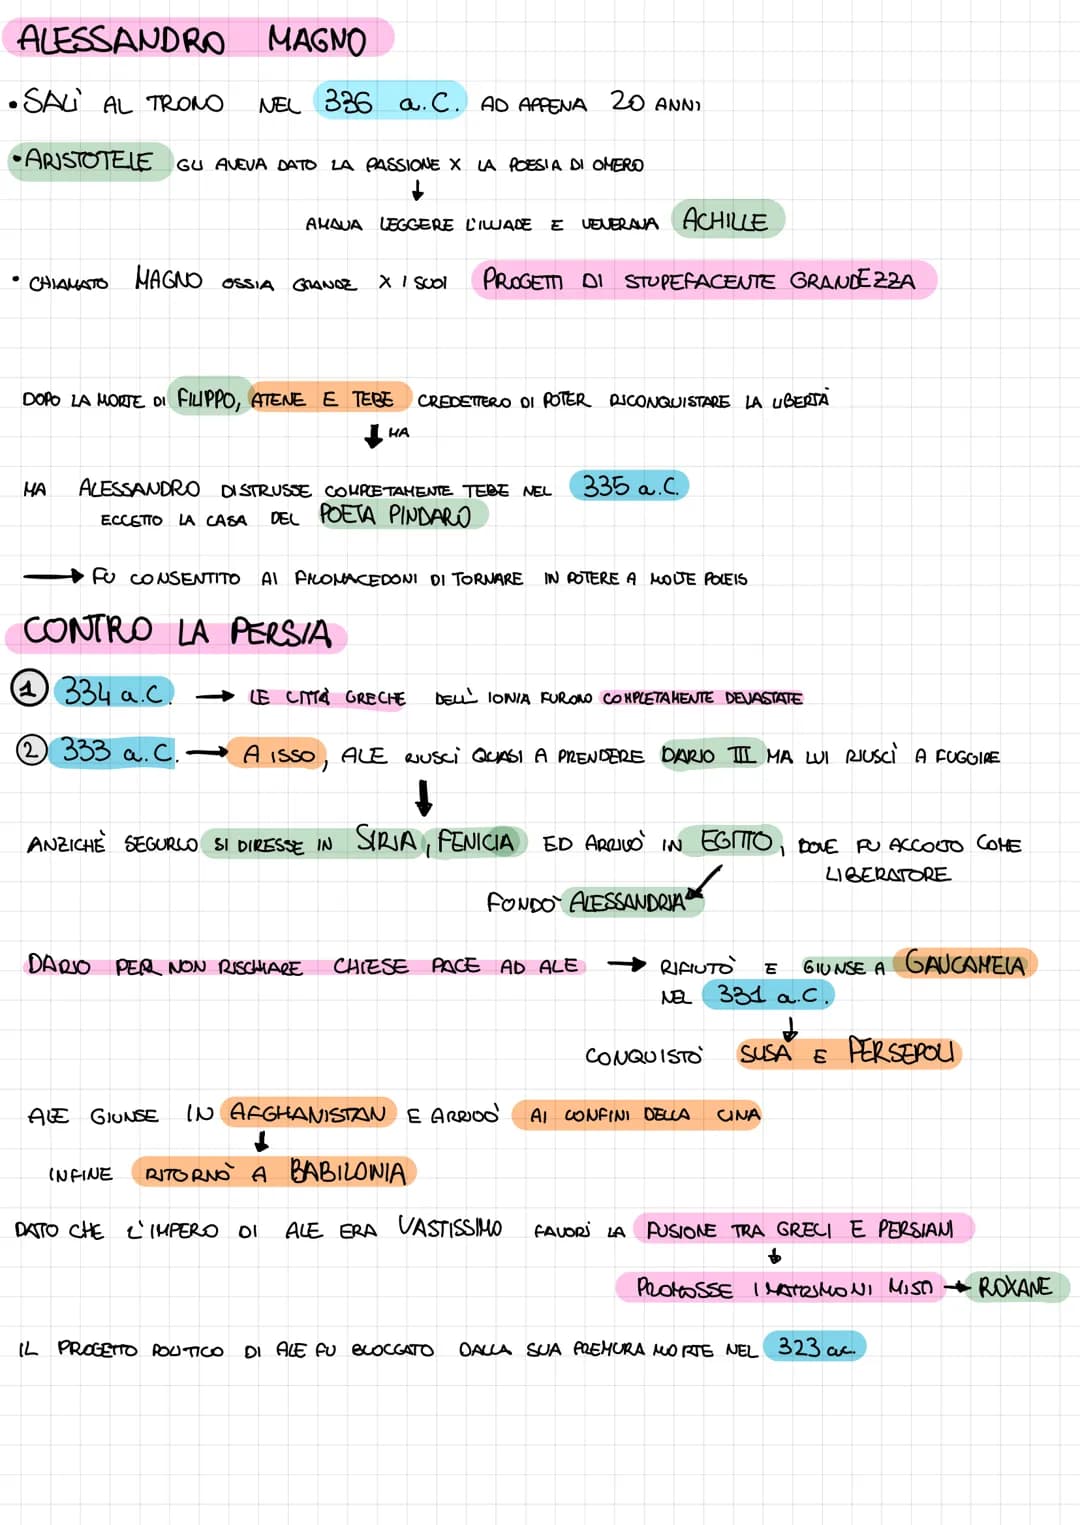 ALESSANDRO MAGNO
• SALÌ AL TRONO NEL 336 a.C. AD APPENA 20 ANNI
• ARISTOTELE GLI AVEVA DATO LA PASSIONE X LA POESIA DI OMERO
↓
AMAVA LEGGERE L'ILIADE E VENERAVA ACHILLE
• CHIAMATO MAGNO OSSIA GRANDE X I SUOI PROGETTI DI STUPEFACENTE GRANDEZZA
DOPO LA MORTE DI FILIPPO, ATENE E TEBE CREDETTERO DI POTER RICONQUISTARE LA LIBERTÀ
↓ MA
MA ALESSANDRO DISTRUSSE COMPLETAMENTE TEBE NEL 335 a.C.
ECCETTO LA CASA DEL POETA PINDARO
→ FU CONSENTITO AI FILOMACEDONI DI TORNARE IN POTERE A MOLTE POLEIS
CONTRO LA PERSIA
1 334 a.C. → LE CITTÀ GRECHE DELL' IONIA FURONO COMPLETAMENTE DEVASTATE
2 333 a.C. → A ISSO, ALE RIUSCÌ QUASI A PRENDERE DARIO III MA LUI RIUSCÌ A FUGGIRE
↓
ANZICHÈ SEGUIRLO SI DIRESSE IN SIRIA, FENICIA ED ARRIVÒ IN EGITTO, DOVE FU ACCOLTO COME
LIBERATORE
FONDÒ ALESSANDRIA
DARIO PER NON RISCHIARE CHIESE PACE AD ALE → RIFIUTÒ E GIUNSE A GAUGAMELA
NEL 331 a.C.
↓
CONQUISTÒ SUSA E PERSEPOLI
ALE GIUNSE IN AFGHANISTAN E ARRIVÒ AI CONFINI DELLA CINA
↓
INFINE RITORNÒ A BABILONIA
DATO CHE L'IMPERO DI ALE ERA VASTISSIMO FAVORÌ LA FUSIONE TRA GRECI E PERSIANI
↓
PROMOSSE I MATRIMONI MISTI → ROXANE
IL PROGETTO POLITICO DI ALE FU BLOCCATO DALLA SUA PREMURA MORTE NEL 323 a.C.